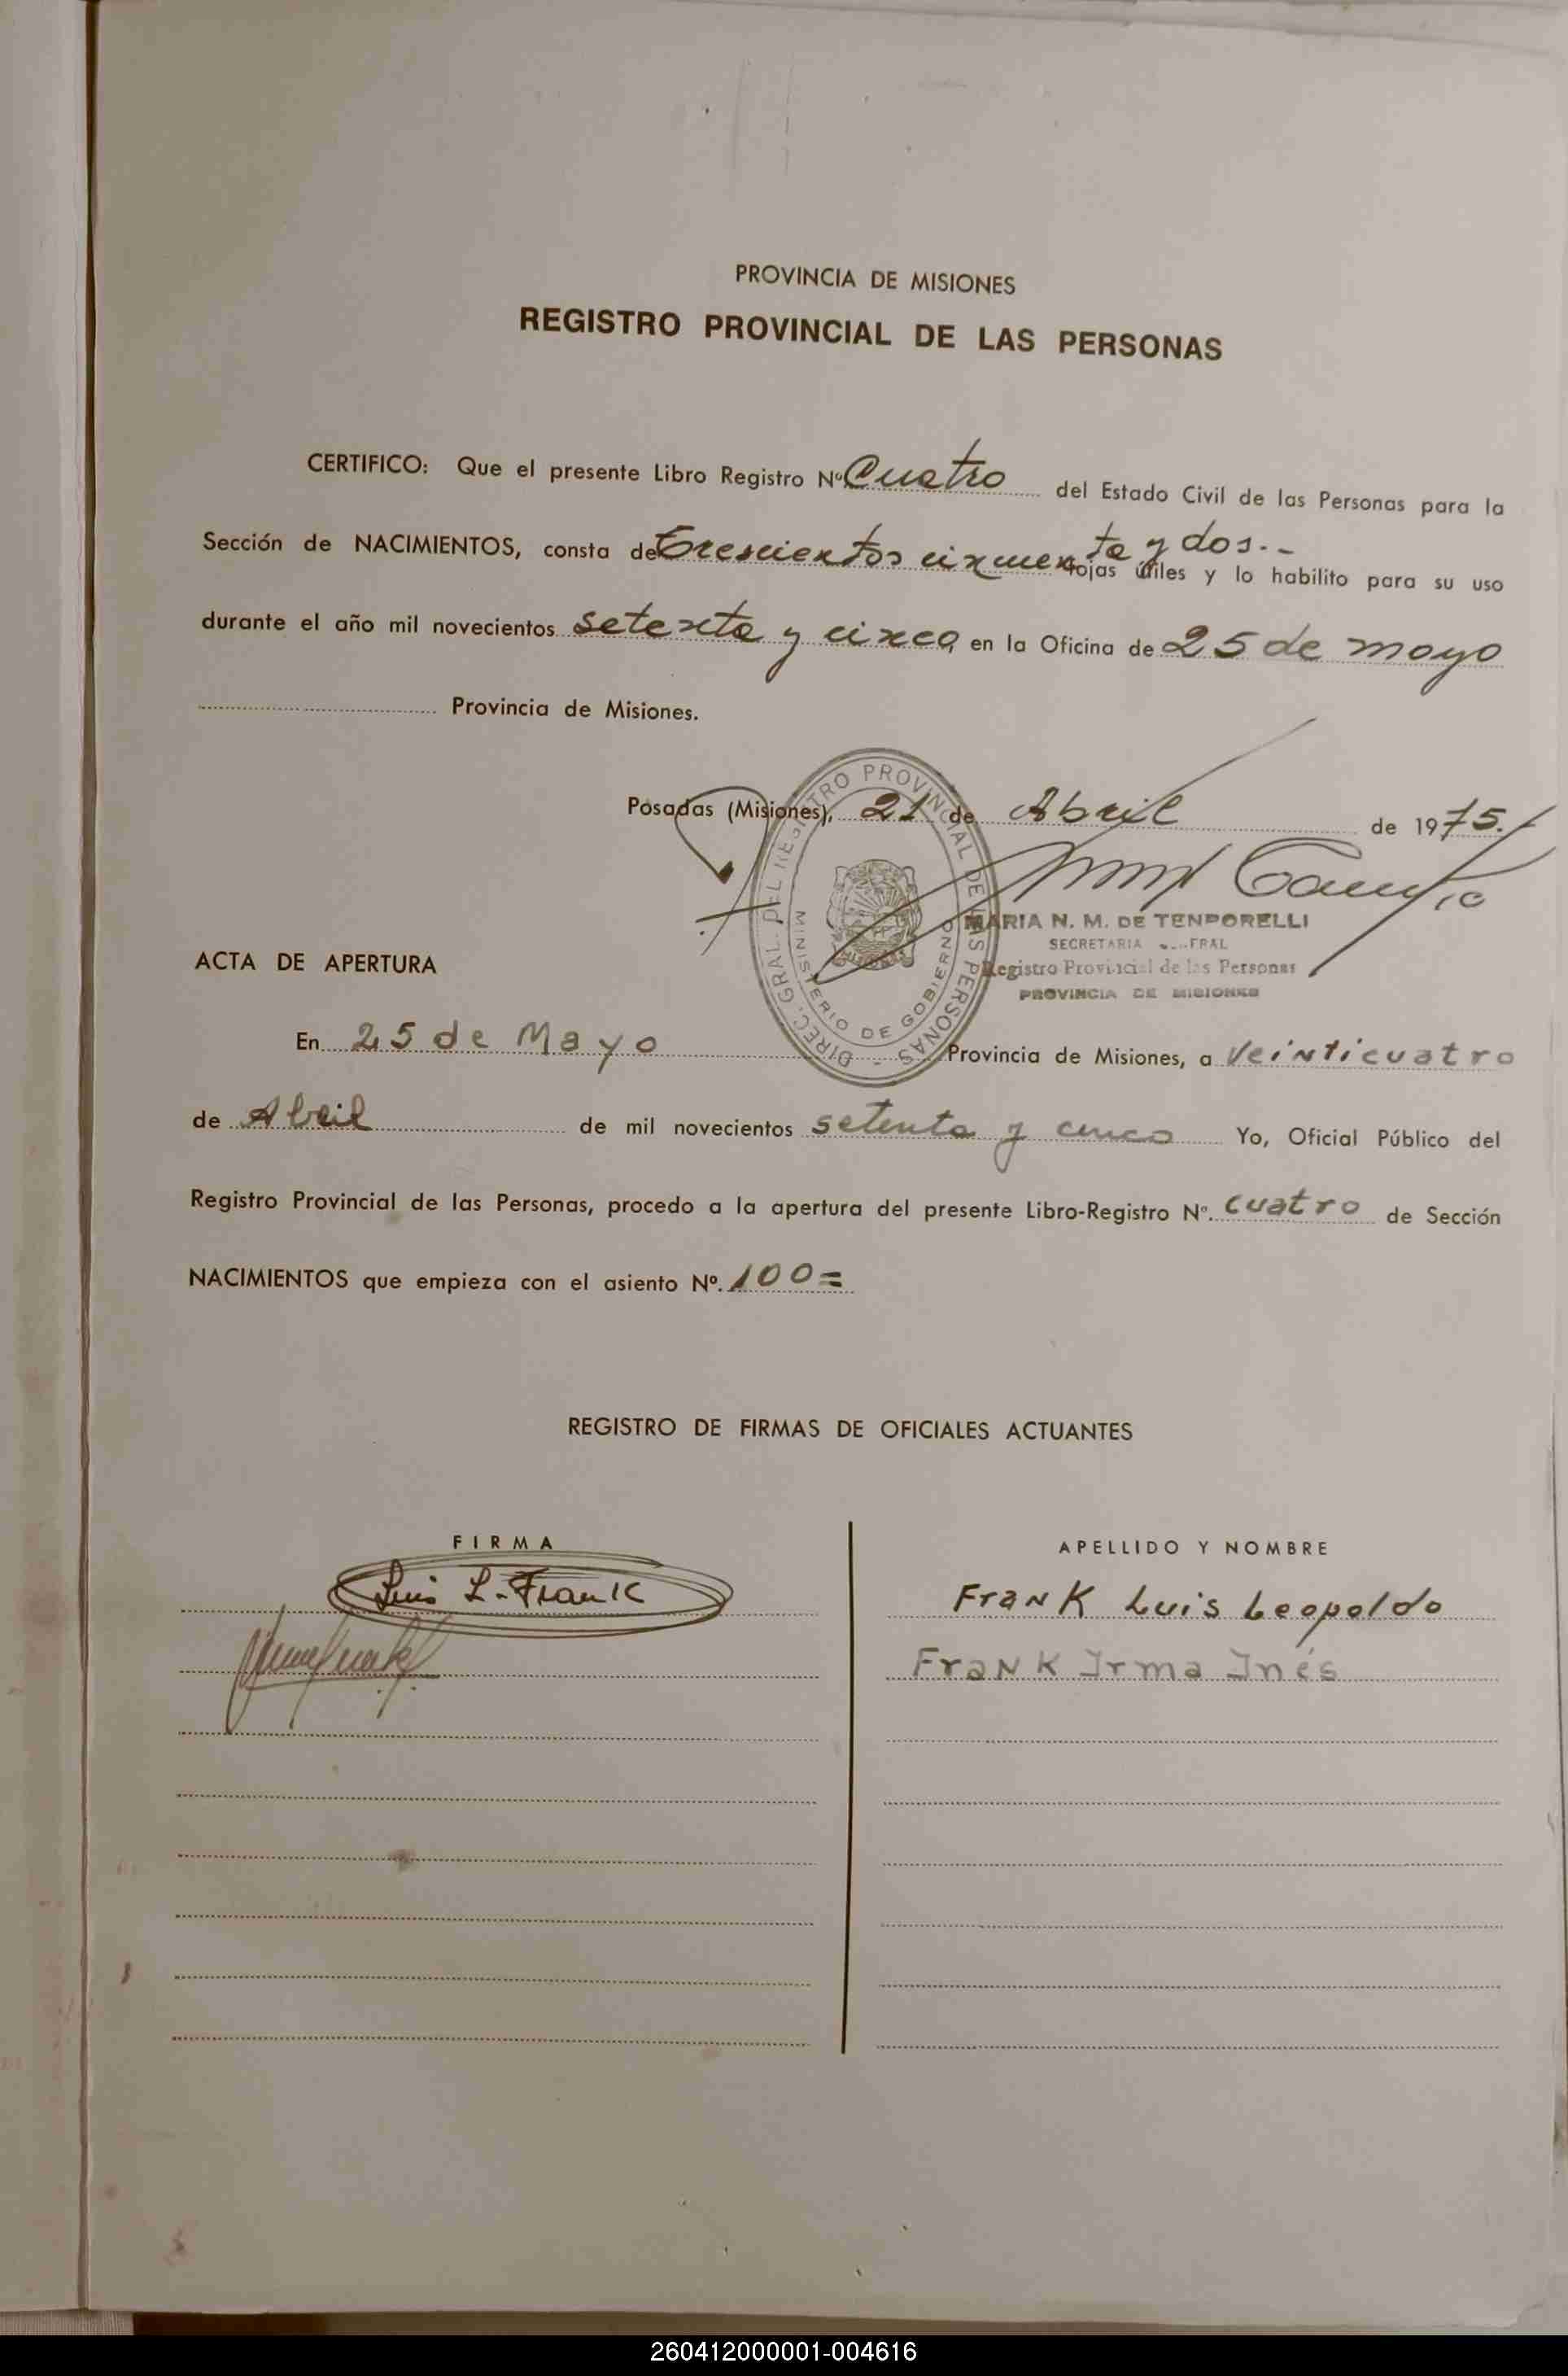 PROVINCIA DE MISIONES
REGISTRO PROVINCIAL DE LAS PERSONAS
CERTIFICO: Que el presente Libro Registro Nº Cuatro del Estado Civil de las Personas para la
Sección de NACIMIENTOS, consta de Trescientos cincuenta y dos.- fojas útiles y lo habilito para su uso
durante el año mil novecientos setenta y cinco en la Oficina de 25 de mayo
Provincia de Misiones.
Posadas (Misiones), 21 de Abril de 1975.
DIREC. GRAL. DEL REGISTRO PROVINCIAL DE LAS PERSONAS -
MINISTERIO DE GOBIERNO
MARIA N. M. DE TENPORELLI
SECRETARIA
Registro Provincial de las Personas
PROVINCIA DE MISIONES
ACTA DE APERTURA
En 25 de Mayo Provincia de Misiones, a veinticuatro
de Abril de mil novecientos setenta y cinco Yo, Oficial Público del
Registro Provincial de las Personas, procedo a la apertura del presente Libro-Registro Nº. cuatro de Sección
NACIMIENTOS que empieza con el asiento Nº. 100=
REGISTRO DE FIRMAS DE OFICIALES ACTUANTES
FIRMA APELLIDO Y NOMBRE
Luis L. Frank Frank Luis Leopoldo
Frank Irma Inés
260412000001-004616